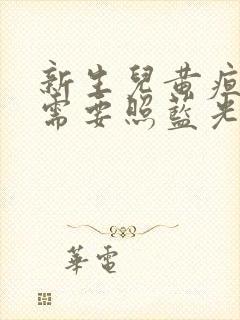 新生兒黃疸
需要照藍光
華電